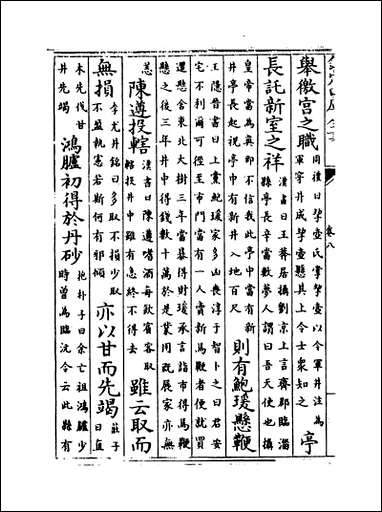 卷八
舉徽宫之職周禮曰挈壺氏掌挈壺以令軍井注為軍穿井成挈壺懸其上令士衆知之亭
長託新室之祥漢書曰王莽居攝劉京上言齊郡臨淄縣亭長辛當數夢人謂曰吾天使也攝
皇帝當為真即不信我此亭中當有新井亭長起視亭中有新井入地百尺則有鮑瑗懸鞭
王隱晉書曰上黨鮑瑗家多山喪淳于智卜之曰君安宅不利爾可徑至市門當有一人賣新馬鞭者便就買
還懸舍東北大樹三年當暴得財瑗承言詣市得馬鞭懸之後三年井中得錢數十萬於是業用既展家亦無
恙陳遵投轄漢書曰陳遵嗜酒每飲賓客取轄投井中雖有急終不得去雖云取而
無損李尤井銘曰多取不損少取不盈執憲若斯何有邪傾亦以甘而先竭莊子曰直
木先伐甘井先竭鴻臚初得於丹砂抱朴子曰余亡祖鴻臚少時曾為臨沅令云此縣有